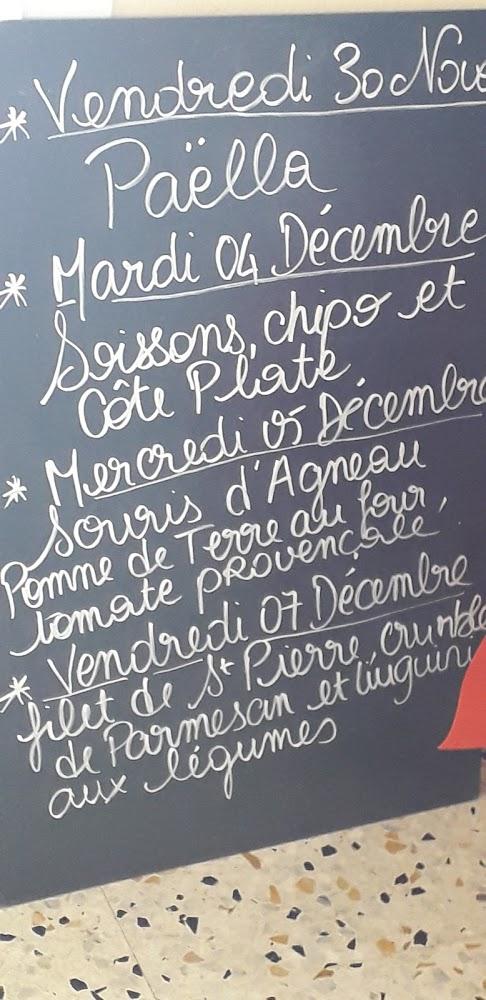 * Vendredi 30 Nove
Paëlla
* Mardi 04 Décembre
Soissons, chipo et
Côte Plate
* Mercredi 05 Décembre
Souris d'Agneau
Pomme de Terre au four,
tomate provençale
* Vendredi 07 Décembre
filet de St Pierre, crumble
de Parmesan et linguini
aux légumes